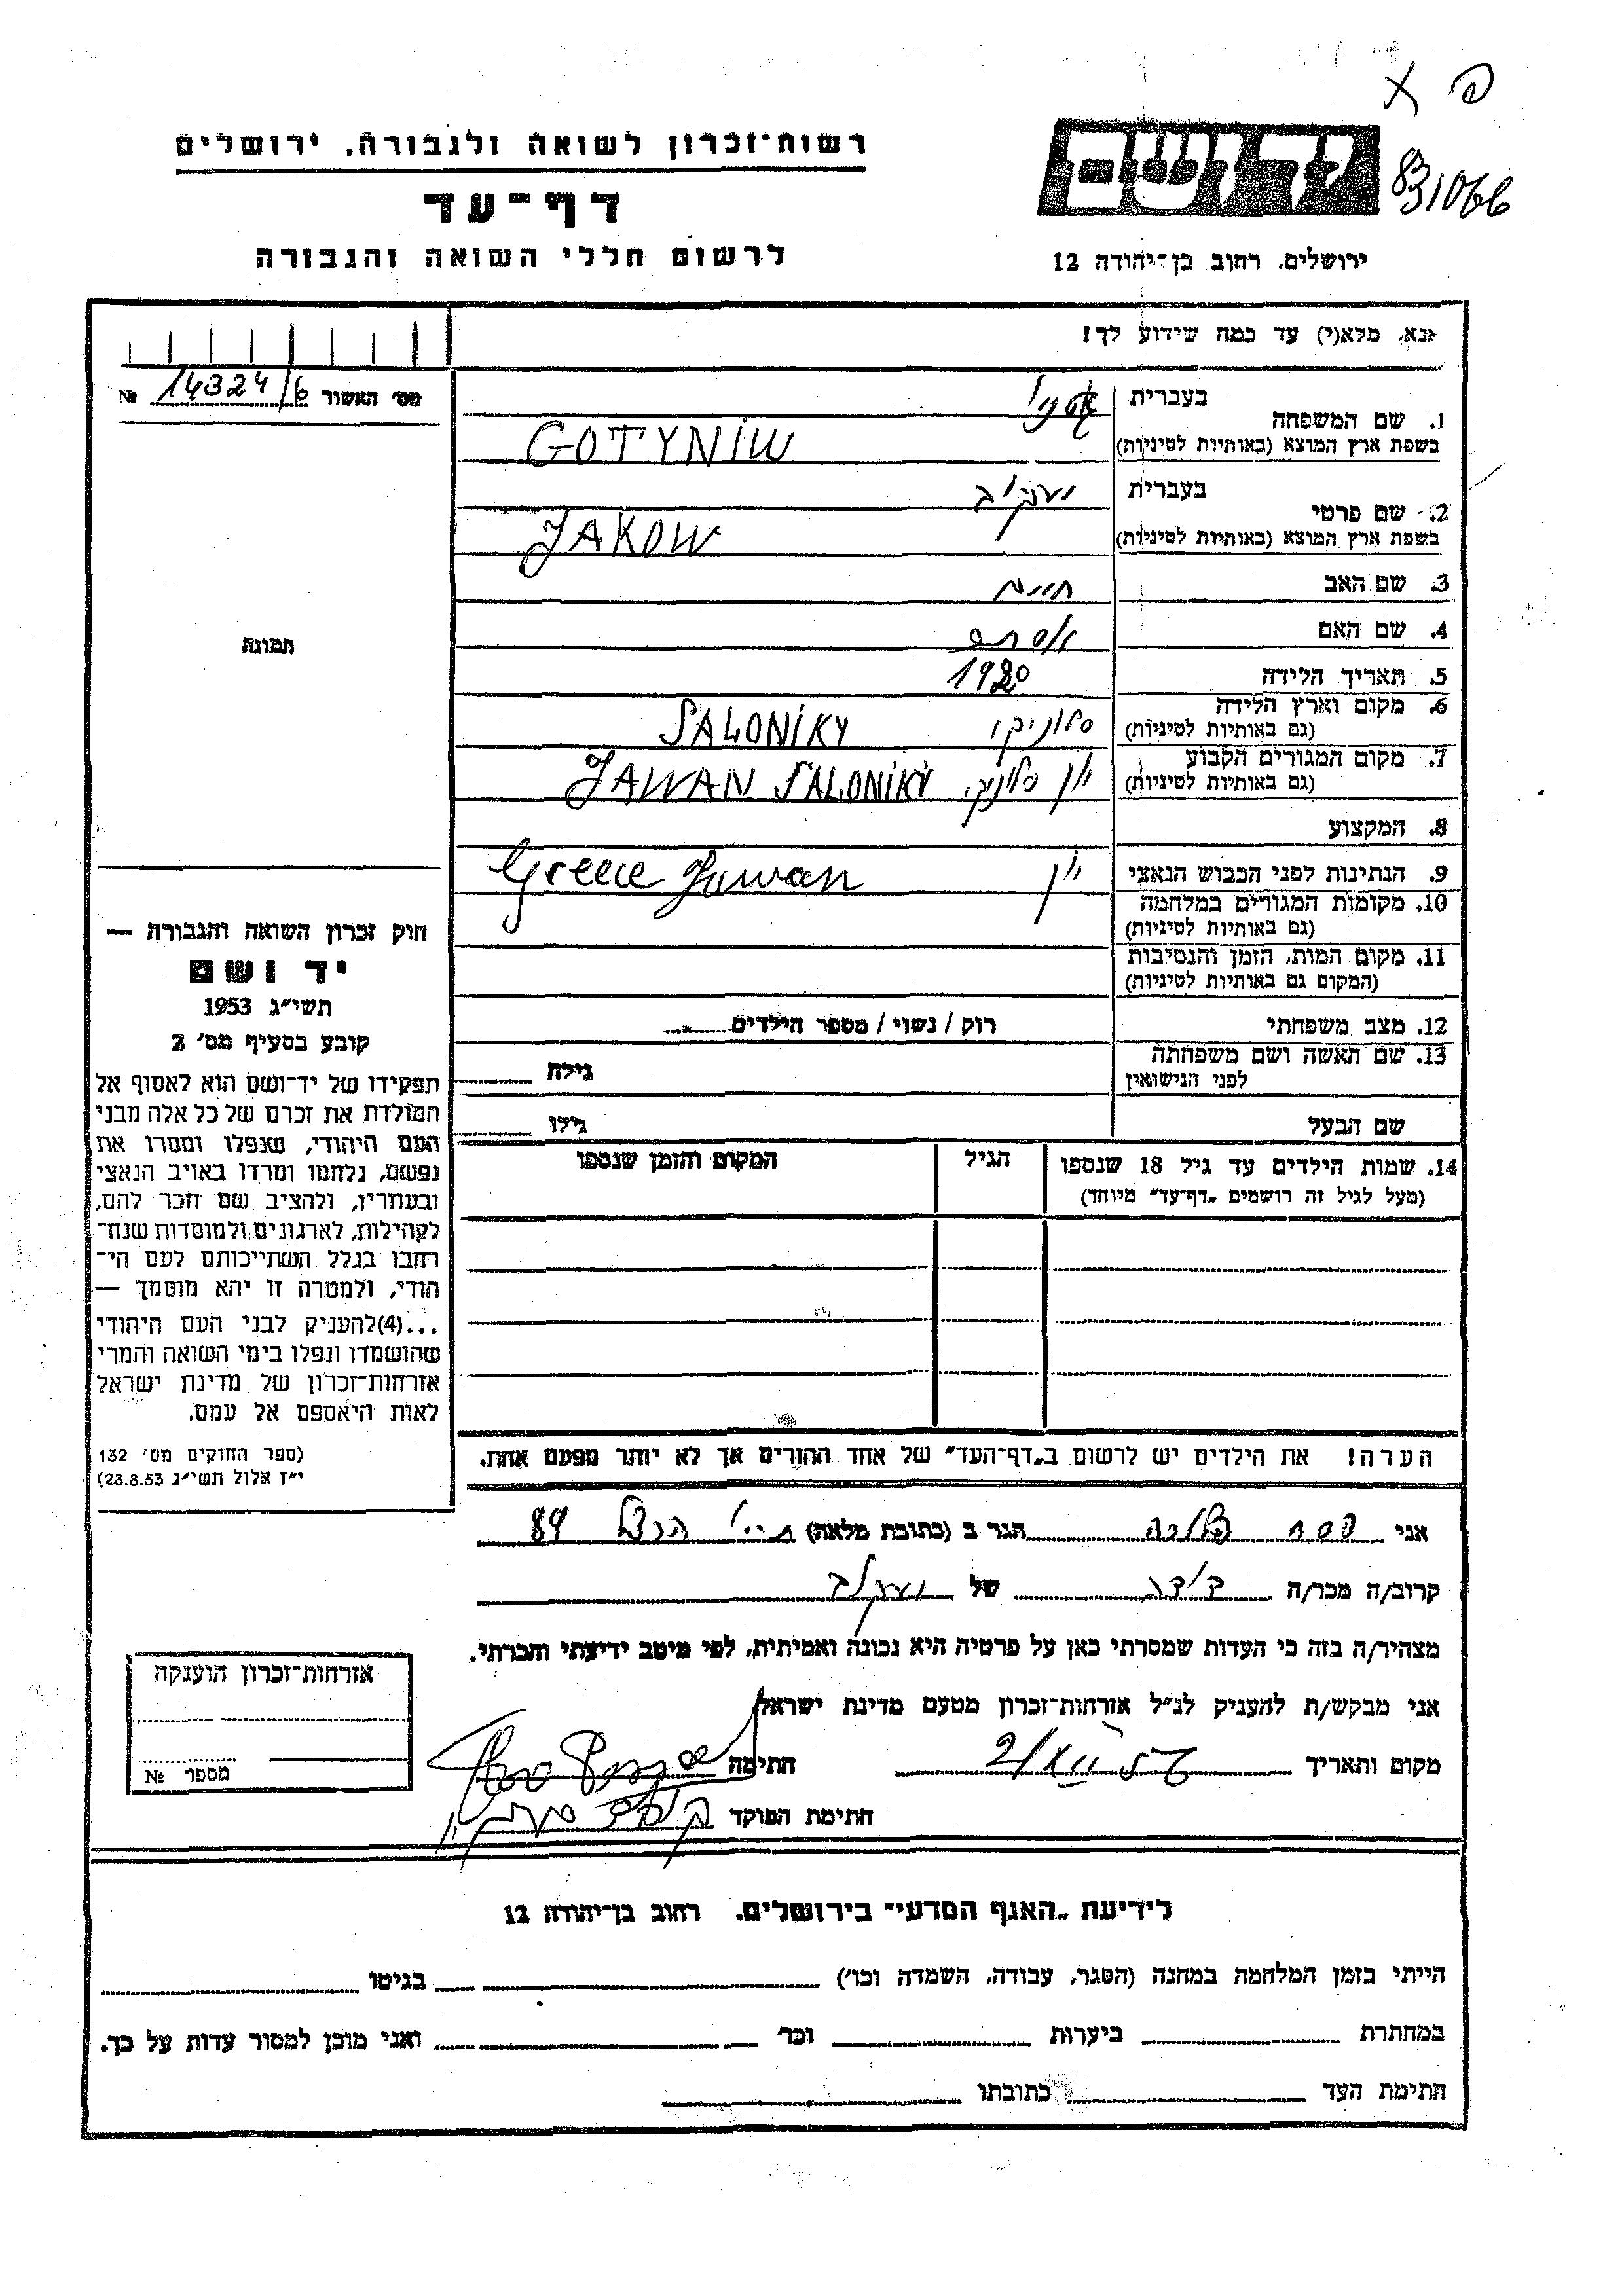 רשות־זכרון לשואה ולגבורה, ירושלים
דף־עד
לרשום חללי השואה והגבורה
ידושם
831066
ירושלים, רחוב בן־יהודה 12
אנא, מלא(י) עד כמה שידוע לך!
מס׳ האשור 14324/6 №
תמונה
1. שם המשפחה
בעברית
בשפת ארץ המוצא (באותיות לטיניות) GOTYNIW
2. שם פרטי
בעברית יעקוב
בשפת ארץ המוצא (באותיות לטיניות) JAKOW
3. שם האב חיים
4. שם האם אסתר
5. תאריך הלידה 1920
6. מקום וארץ הלידה
(גם באותיות לטיניות) סלוניקי SALONIKY
7. מקום המגורים הקבוע
(גם באותיות לטיניות) יון סלוניקי JAWAN SALONIKY
8. המקצוע
9. הנתינות לפני הכבוש הנאצי יון Greece Jawan
10. מקומות המגורים במלחמה
(גם באותיות לטיניות)
11. מקום המות, הזמן והנסיבות
(המקום גם באותיות לטיניות)
12. מצב משפחתי רוק / נשוי / מספר הילדים
13. שם האשה ושם משפחתה
לפני הנישואין גילה
שם הבעל גילו
14. שמות הילדים עד גיל 18 שנספו הגיל המקום והזמן שנספו
(מעל לגיל זה רושמים „דף־עד״ מיוחד)
הערה! את הילדים יש לרשום ב„דף־העד״ של אחד ההורים אך לא יותר מפעם אחת.
חוק זכרון השואה והגבורה —
יד ושם
תשי״ג 1953
קובע בסעיף מס׳ 2
תפקידו של יד־ושם הוא לאסוף אל
המולדת את זכרם של כל אלה מבני
העם היהודי, שנפלו ומסרו את
נפשם, נלחמו ומרדו באויב הנאצי
ובעוזריו, ולהציב שם וזכר להם,
לקהילות, לארגונים ולמוסדות שנח־
רחבו בגלל השתייכותם לעם הי־
הודי, ולמטרה זו יהא מוסמך —
...(4)להעניק לבני העם היהודי
שהושמדו ונפלו בימי השואה והמרי
אזרחות־זכרון של מדינת ישראל
לאות היאספם אל עמם.
(ספר החוקים מס׳ 132
י״ז אלול תשי״ג 28.8.53)
אני הגר ב (כתובת מלאה) 84
קרוב/ה מכר/ה דודה של יעקוב
מצהיר/ה בזה כי העדות שמסרתי כאן על פרטיה היא נכונה ואמיתית, לפי מיטב ידיעתי והכרתי.
אני מבקש/ת להעניק לנ״ל אזרחות־זכרון מטעם מדינת ישראל
מקום ותאריך חתימה
חתימת הפוקד
אזרחות־זכרון הוענקה
מספר №
לידיעת „האגף המדעי״ בירושלים, רחוב בן־יהודה 12
הייתי בזמן המלחמה במחנה (הסגר, עבודה, השמדה וכו׳) בגיטו
במחתרת ביערות וכו׳ ואני מוכן למסור עדות על כך.
חתימת העד כתובתו